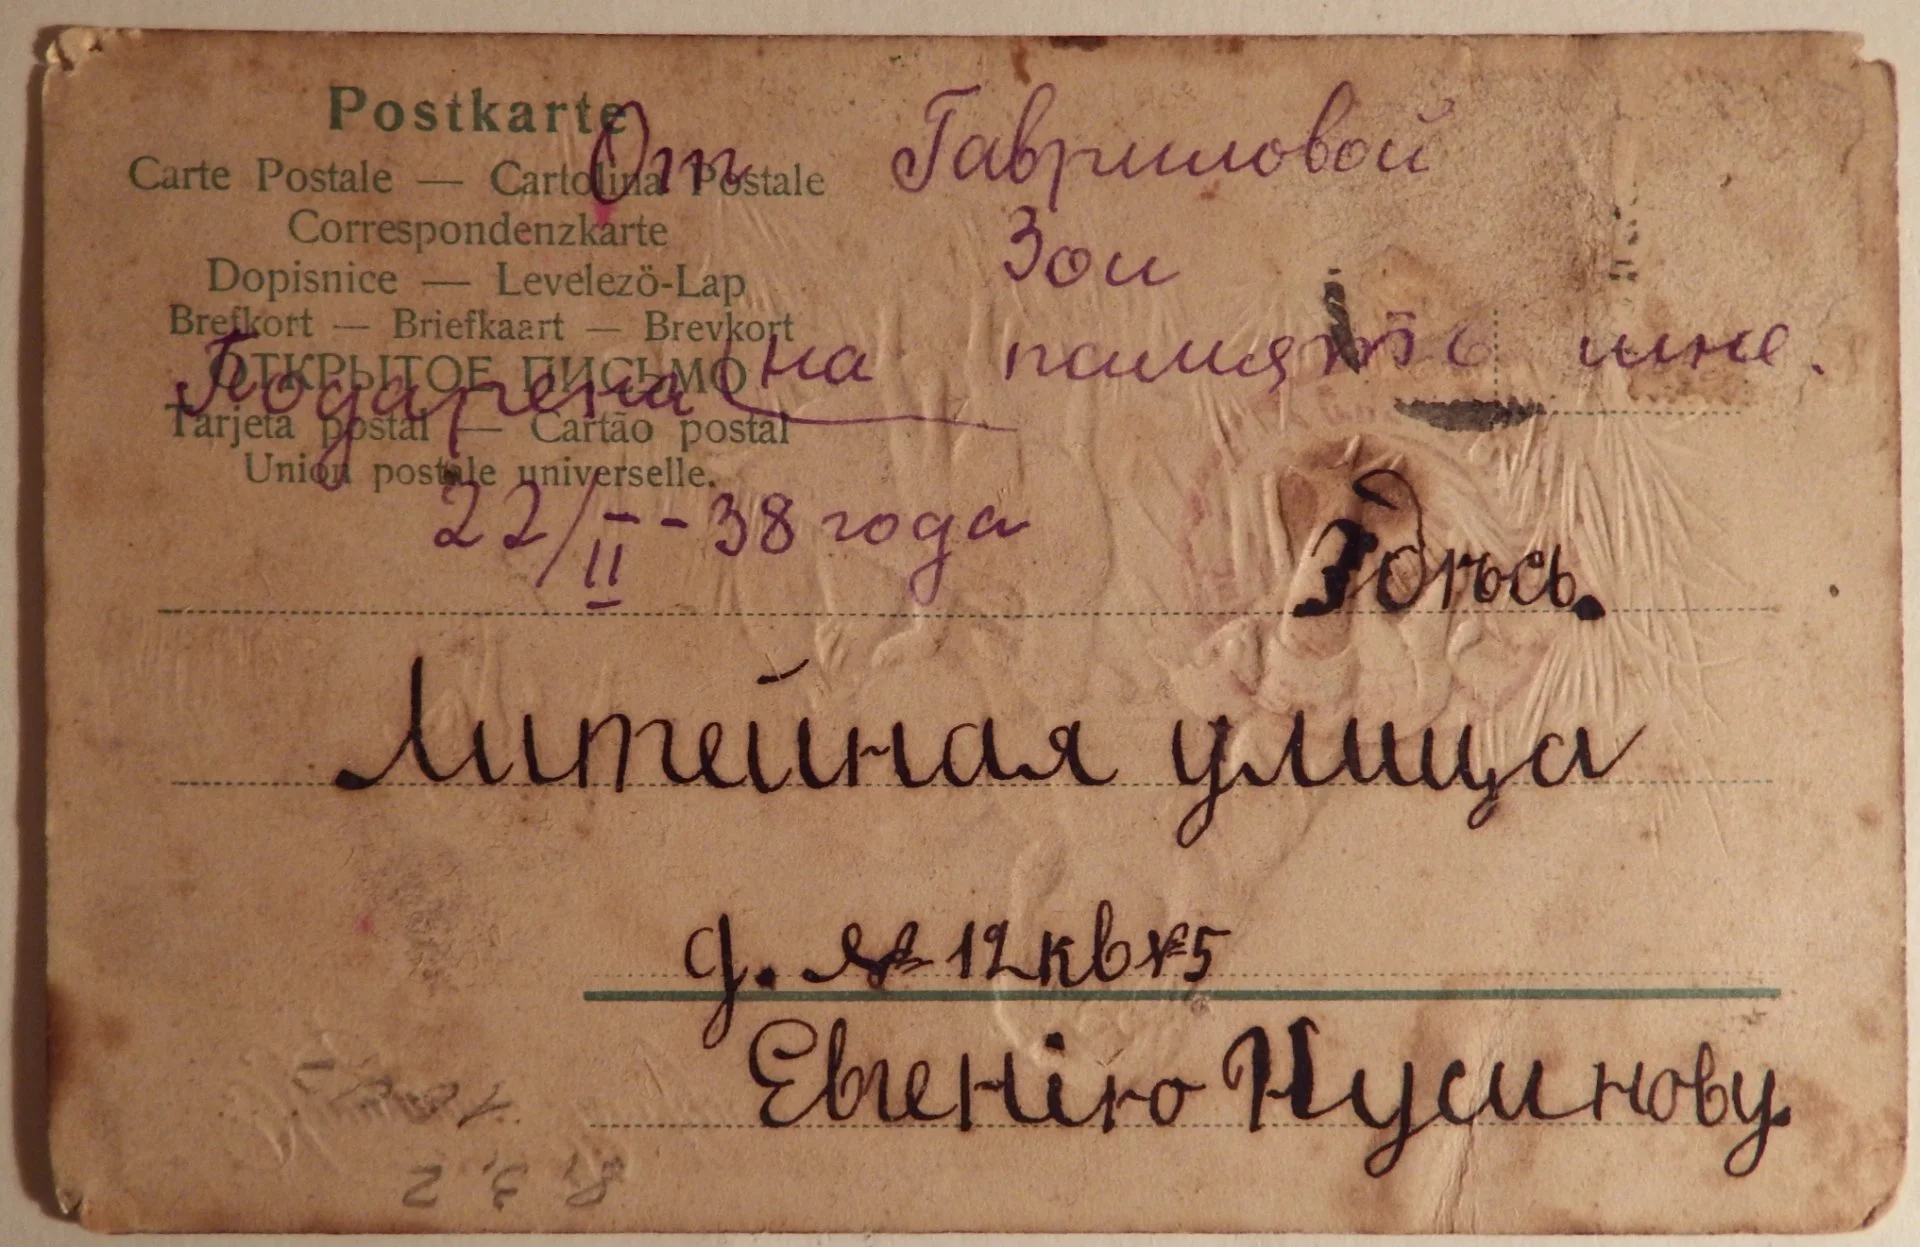 Postkarte
Carte Postale — Cartolina Postale
Correspondenzkarte
Dopisnice — Levelezö-Lap
Brefkort — Briefkaart — Brevkort
ОТКРЫТОЕ ПИСЬМО
Tarjeta postal — Cartão postal
Union postale universelle.
От Гавриловой
Зои
Подарена на память мне.
22/II - 38 года
Здѣсь.
Литейная улица
д. № 12 кв № 5
Евгенію Нусинову.